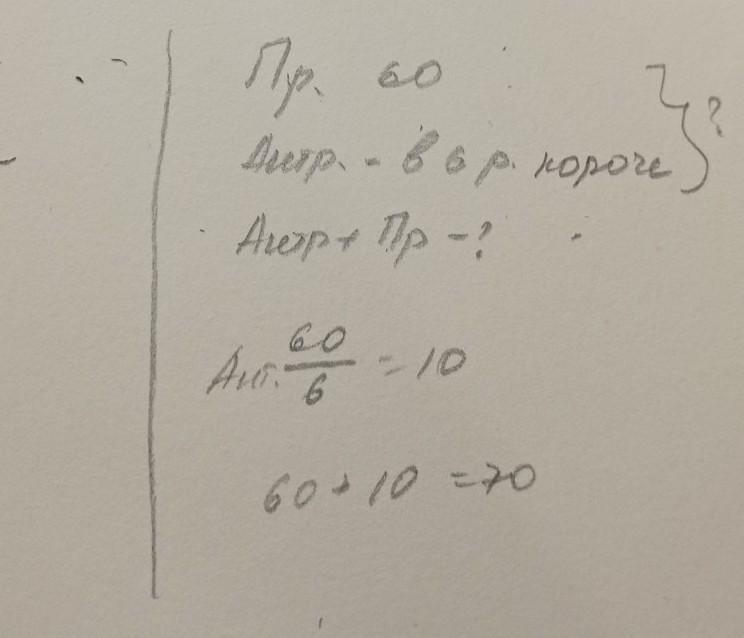 Пр. 60
Антр. - в 6 р. короче } ?
Антр + Пр - ?
Ант. 60/6 = 10
60 + 10 = 70